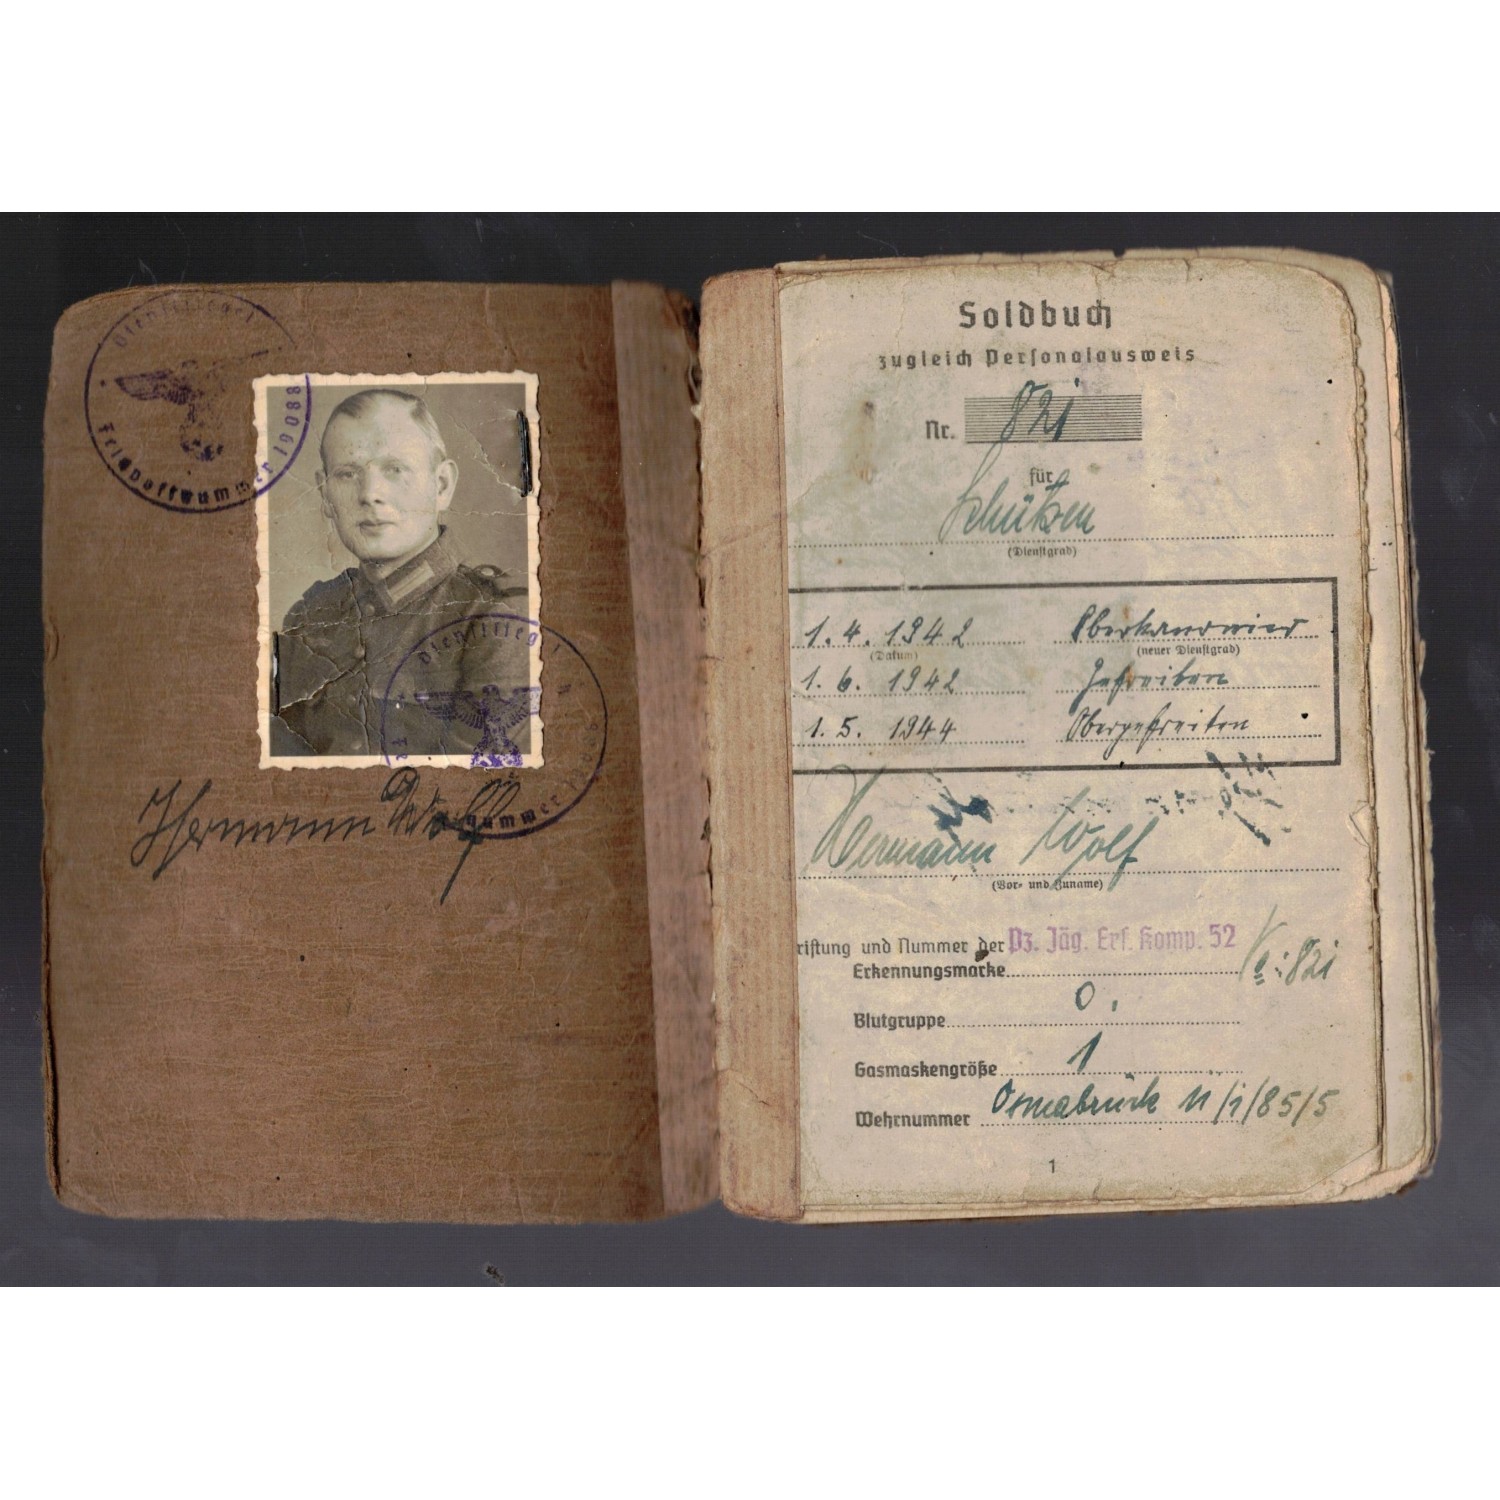 Dienstsiegel
Feldpostnummer 19088
Dienstsiegel
Hermann Wolf
Soldbuch
zugleich Personalausweis
Nr. 821
für
Schützen
(Dienstgrad)
1.4.1942 Oberkanonier
(Datum) (neuer Dienstgrad)
1.6.1942 Gefreiten
1.5.1944 Obergefreiten
Hermann Wolf
(Vor- und Zuname)
riftung und Nummer der Pz. Jäg. Ers. Komp. 52
Erkennungsmarke 821
Blutgruppe 0.
Gasmaskengröße 1
Wehrnummer Osnabrück 11/1/85/5
1